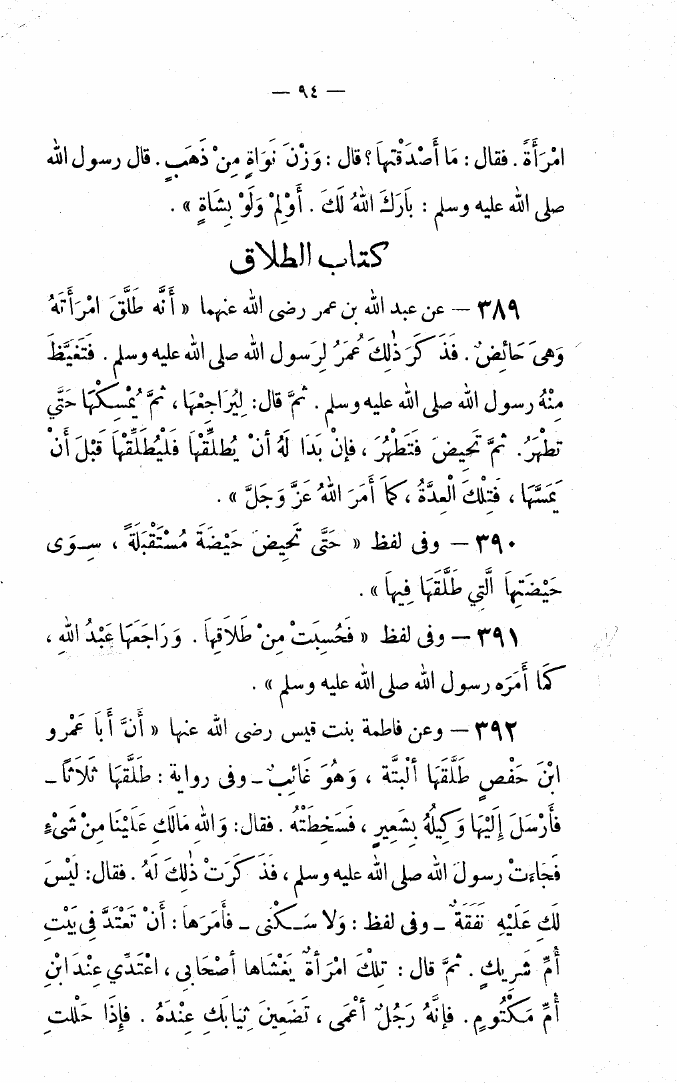 — ٩٤ —
امْرَأَةً . فقال : مَا أَصْدَقْتَهَا ؟ قال : وَزْنَ نَوَاةٍ مِنْ ذَهَبٍ . قال رسول الله
صلى الله عليه وسلم : بَارَكَ اللهُ لَكَ . أَوْلِمْ وَلَوْ بِشَاةٍ » .
كتاب الطلاق
٣٨٩ — عن عبد الله بن عمر رضى الله عنهما « أَنَّه طَلَّقَ امْرَأَتَهُ
وَهِىَ حَائِضٌ . فَذَكَرَ ذٰلِكَ عُمَرُ لِرَسول الله صلى الله عليه وسلم . فَتَغَيَّظَ
مِنْهُ رسول الله صلى الله عليه وسلم . ثمَّ قال : لِيُرَاجِعْهَا ، ثمَّ يُمْسِكْهَا حَتَّى
تَطْهُرَ . ثمَّ تَحِيضَ فَتَطْهُرَ ، فإنْ بَدَا لَهُ أنْ يُطَلِّقَهَا فَلْيُطَلِّقْهَا قَبْلَ أَنْ
يَمَسَّهَا ، فَتِلْكَ الْعِدَّةُ ، كمَا أَمَرَ اللهُ عَزَّ وَجَلَّ » .
٣٩٠ — وفى لفظ « حَتَّى تَحِيضَ حَيْضَةً مُسْتَقْبَلَةً ، سِوَى
حَيْضَتِهَا الَّتِي طَلَّقَهَا فِيهَا » .
٣٩١ — وفى لفظ « فَحُسِبَتْ مِنْ طَلَاقِهَا . وَرَاجَعَهَا عَبْدُ اللهِ ،
كَمَا أَمَرَه رسول الله صلى الله عليه وسلم » .
٣٩٢ — وعن فاطمة بنت قيس رضى الله عنها « أَنَّ أَبَا عَمْرِو
ابْنَ حَفْصٍ طَلَّقَهَا أَلْبَتَّةَ ، وَهُوَ غَائِبٌ ـ وفى رواية : طَلَّقَهَا ثَلَاثاً ـ
فَأَرْسَلَ إِلَيْهَا وَكِيلُهُ بِشَعِيرٍ ، فَسَخِطَتْهُ . فقال : وَاللهِ مَالَكِ عَلَيْنَا مِنْ شَىْءٍ
فَجَاءَتْ رسولَ الله صلى الله عليه وسلم ، فَذَكَرَتْ ذٰلِكَ لَهُ . فقال : لَيْسَ
لَكِ عَلَيْهِ نَفَقَةٌ ـ وفى لفظ : وَلا سَكْنَى ـ فأَمَرَهَا : أَنْ تَعْتَدَّ فِى بَيْتِ
أُمِّ شَرِيكٍ . ثمَّ قال : تِلْكَ امْرَأةٌ يَغْشَاها أَصْحَابِى ، اعْتَدِّي عِنْدَ ابْنِ
أُمِّ مَكْتُومٍ . فإِنَّهُ رَجُلٌ أَعْمَى ، تَضَعِينَ ثِيَابَكِ عِنْدَهُ . فإِذَا حَلَلْتِ